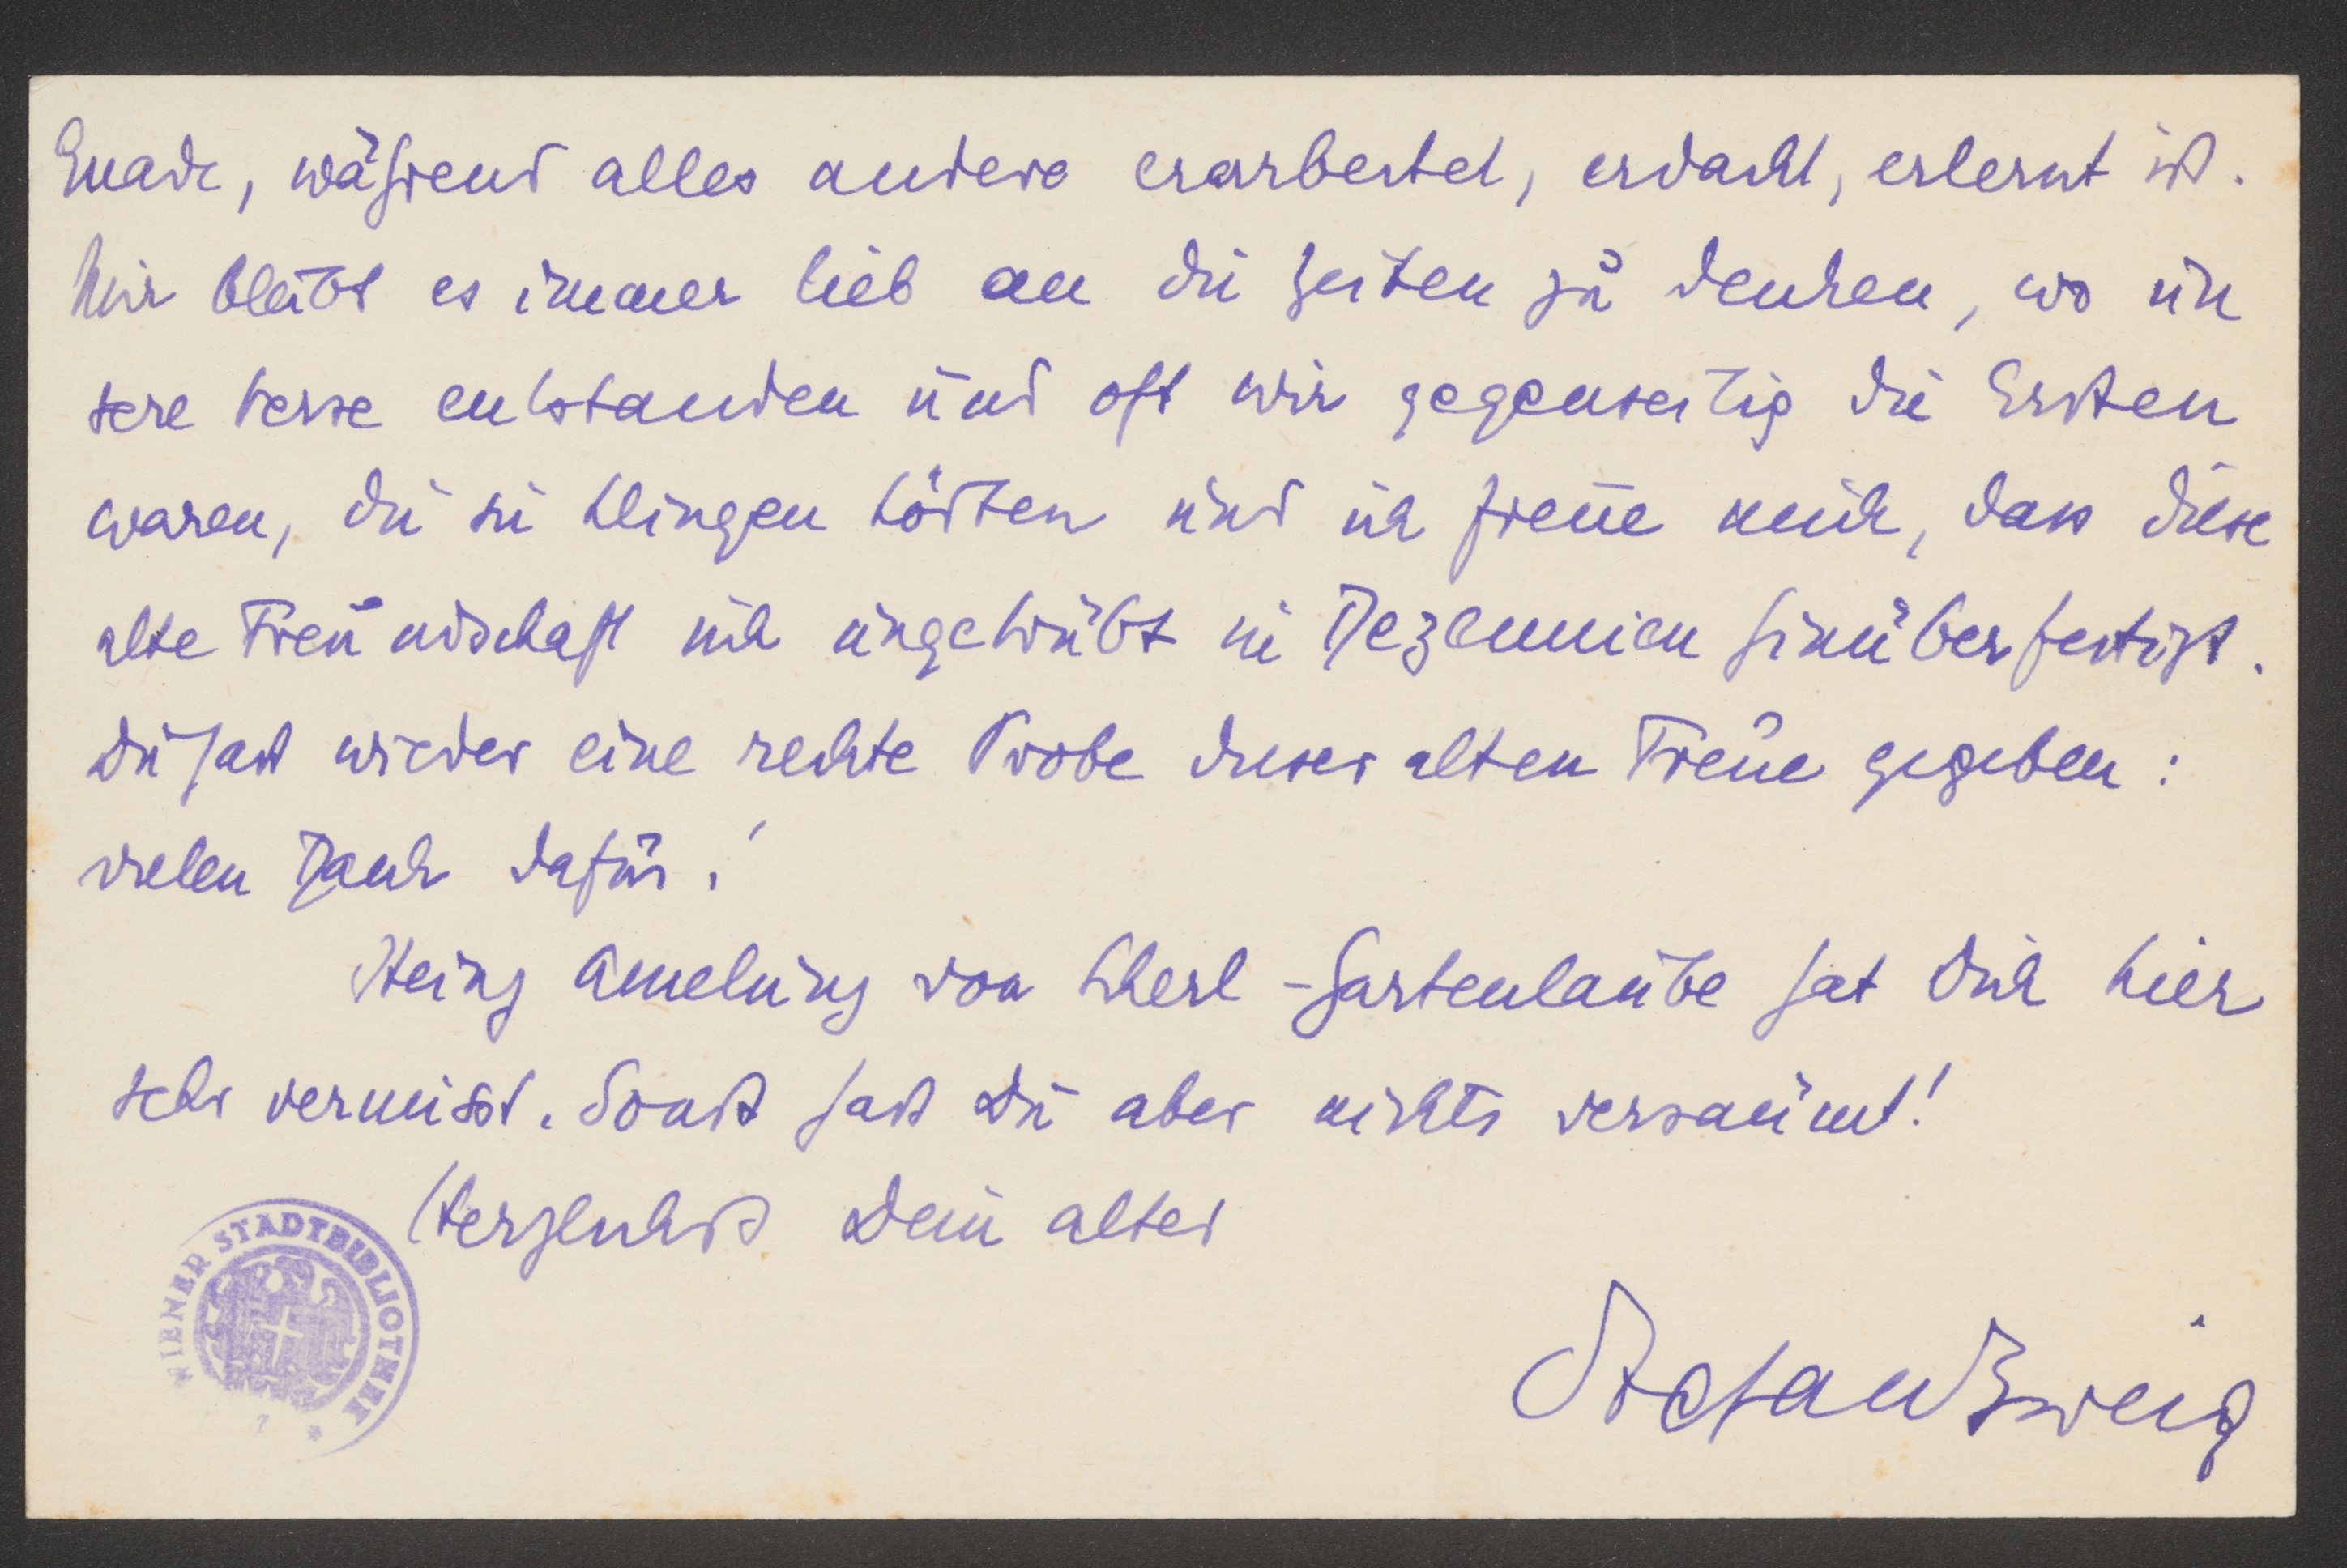 Gnade, während alles andere erarbeitet, erdacht, erlernt ist.
Mir bleibt es immer lieb an die Zeiten zu denken, wo un
sere Verse entstanden und oft wir gegenseitig die Ersten
waren, die sie klingen hörten und ich freue mich, dass diese
alte Freundschaft sich ungetrübt in Dezennien hinüberfestigt.
Du hast wieder eine rechte Probe dieser alten Treue gegeben:
vielen Dank dafür!
Heinz Amelung von Scherl-Gartenlaube hat Dich hier
sehr vermisst. Sonst hast Du aber nichts versäumt!
Herzlichst Dein alter
Stefan Zweig
WIENER STADTBIBLIOTHEK
7 *